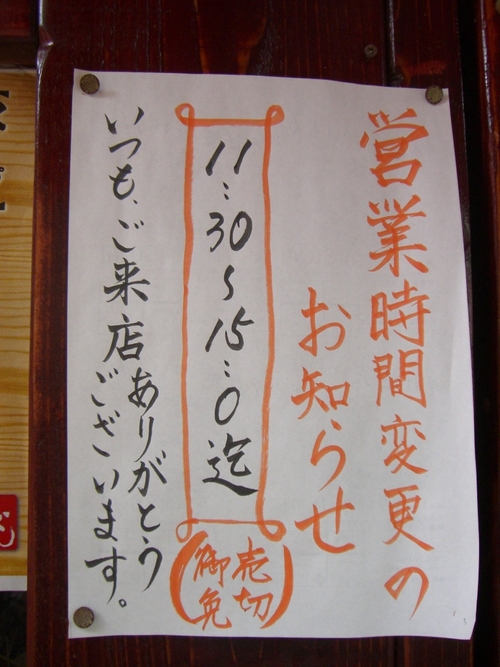 営業時間変更の
お知らせ
11:30~15:0迄
(売切
御免)
いつも、ご来店ありがとう
ございます。